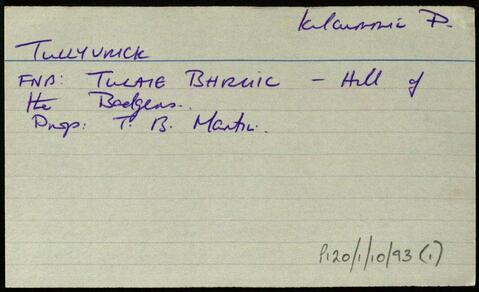 Kilcummin P.
TULLYVRICK
FNB: TULAIE BHRUIC - Hill of
the Badgers.
Prop: T. B. Martin.
P120/1/10/93 (1)